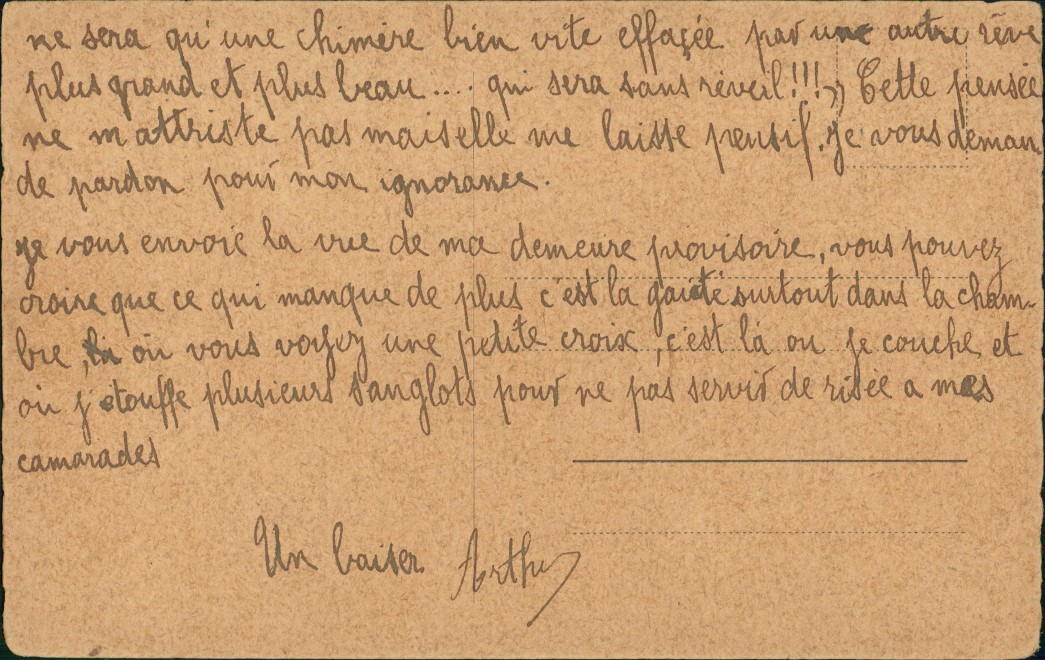 ne sera qu'une chimère bien vite effaçée par une autre rêve
plus grand et plus beau.... qui sera sans réveil!!!)) Cette pensée
ne m'attriste pas mais elle me laisse pensif. Je vous deman
de pardon pour mon ignorance.
Je vous envoie la vue de ma demeure provisoire, vous pouvez
croire que ce qui manque de plus c'est la gaieté surtout dans la cham-
bre, là où vous voyez une petite croix, c'est là ou je couche et
où j'étouffe plusieurs sanglots pour ne pas servir de risée a mes
camarades
Un baiser Arthur